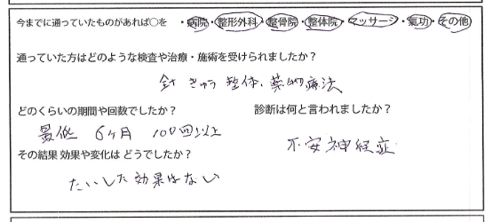 今までに通っていたものがあれば○を ・病院・整形外科・整骨院・整体院・マッサージ・気功・その他
通っていた方はどのような検査や治療・施術を受けられましたか？
針 きゅう 整体、薬物療法
どのくらいの期間や回数でしたか？ 診断は何と言われましたか？
最低 6ヶ月 100回以上
不安神経症
その結果 効果や変化は どうでしたか？
たいした効果はない